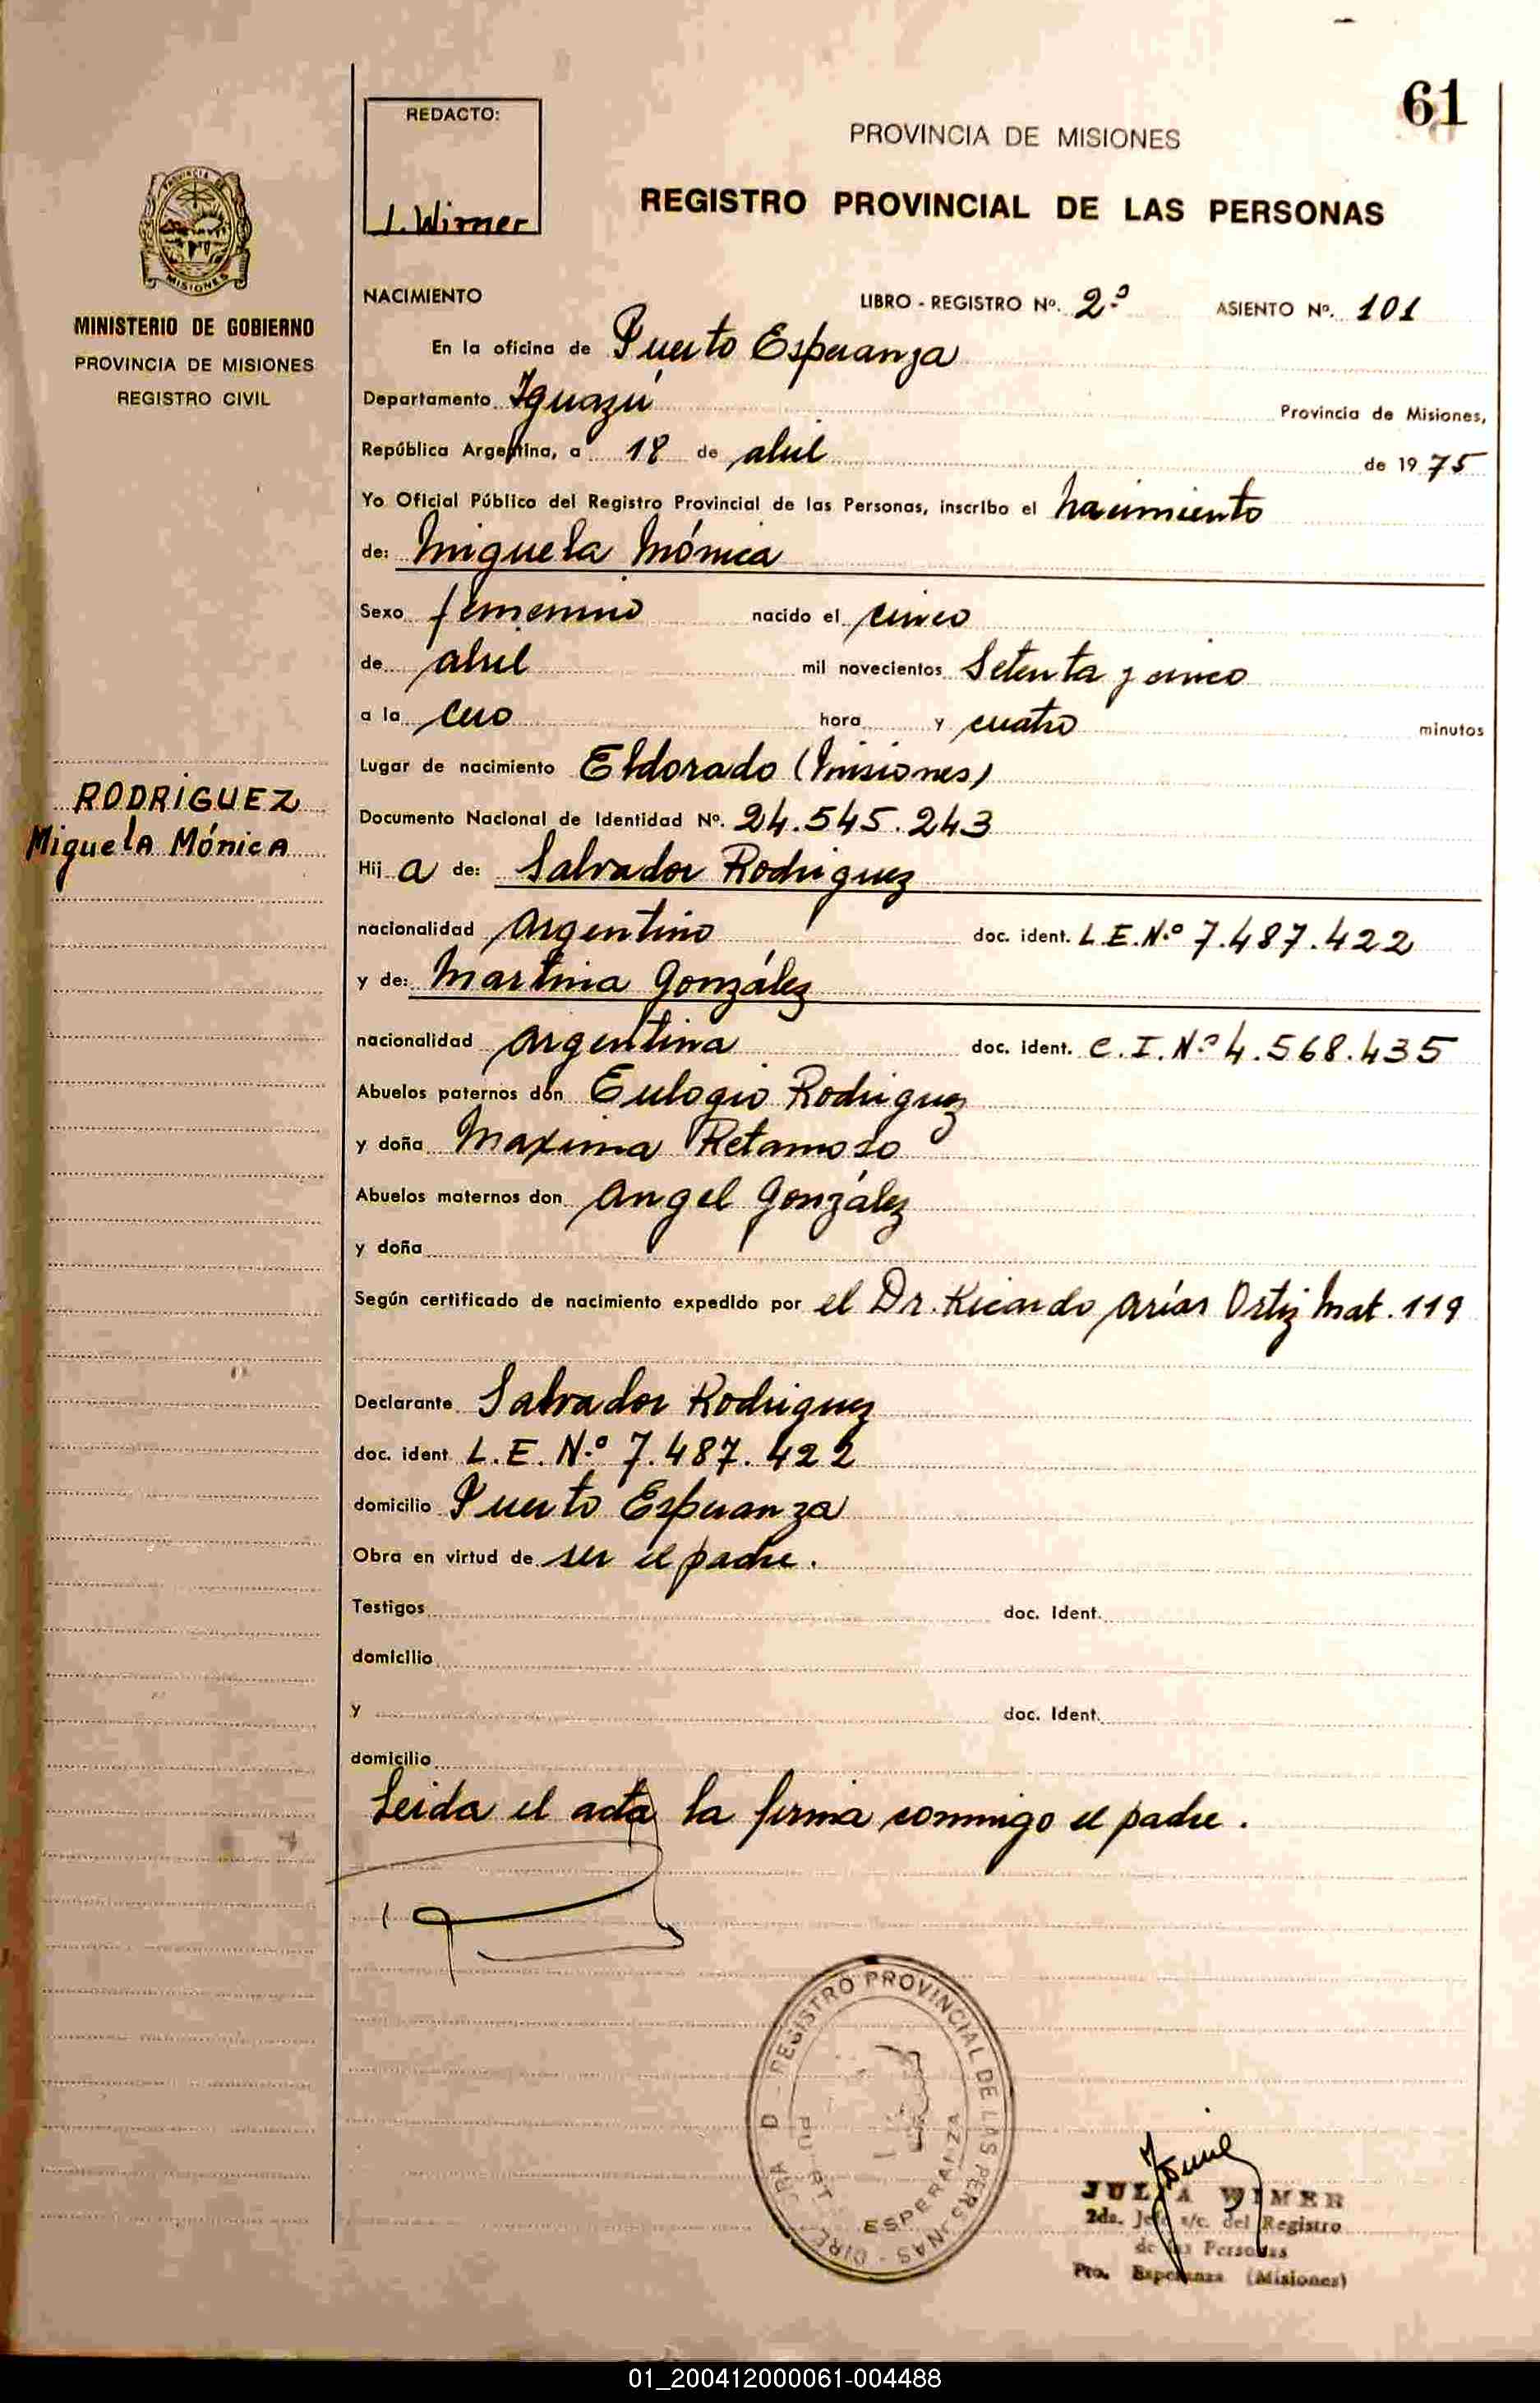 61
REDACTO:
J. Wimer
PROVINCIA DE MISIONES
REGISTRO PROVINCIAL DE LAS PERSONAS
MISIONES
MINISTERIO DE GOBIERNO
PROVINCIA DE MISIONES
REGISTRO CIVIL
NACIMIENTO LIBRO - REGISTRO Nº. 2º ASIENTO Nº. 101
En la oficina de Puerto Esperanza
Departamento Iguazú Provincia de Misiones,
República Argentina, a 18 de abril de 1975
Yo Oficial Público del Registro Provincial de las Personas, inscribo el nacimiento
de: Miguela Mónica
Sexo femenino nacido el cinco
de abril mil novecientos Setenta y cinco
a la cero hora y cuatro minutos
Lugar de nacimiento Eldorado (Misiones)
RODRIGUEZ
Miguela Mónica
Documento Nacional de Identidad Nº. 24.545.243
Hij a de: Salvador Rodriguez
nacionalidad argentino doc. ident. L.E.Nº 7.487.422
y de: Martina González
nacionalidad argentina doc. ident. C.I.Nº 4.568.435
Abuelos paternos don Eulogio Rodriguez
y doña Maxima Retamoso
Abuelos maternos don Angel González
y doña
Según certificado de nacimiento expedido por el Dr. Ricardo Arías Ortiz Mat. 119
Declarante Salvador Rodriguez
doc. ident L.E. Nº 7.487.422
domicilio Puerto Esperanza
Obra en virtud de ser el padre.
Testigos doc. Ident.
domicilio
y doc. Ident.
domicilio
Leida el acta la firma conmigo el padre.
REGISTRO PROVINCIAL DE LAS PERSONAS
ESPERANZA
JULIA WIMER
2da. Jefe s/c. del Registro
de las Personas
Pto. Esperanza (Misiones)
01_200412000061-004488